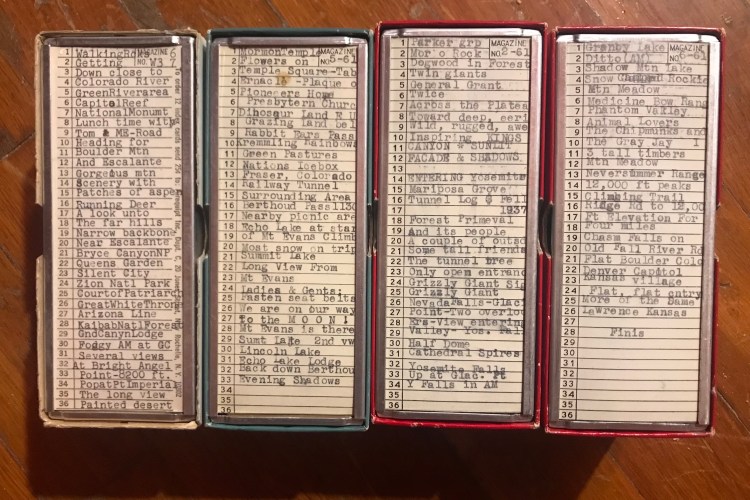 1 WalkingRocks MAGAZINE 6
2 Getting NO. W3 7
3 Down close to
4 Colorado River
5 GreenRiverarea
6 CapitolReef
7 NationalMonumt
8 Lunch time wit
9 Tom & ME-Road
10 Heading for
11 Boulder Mtn
12 And Escalante
13 Gorgeous mtn
14 Scenery with
15 Patches of aspen
16 Running Deer
17 A look unto
18 The far hills
19 Narrow backbone
20 Near Escalante
21 Bryce CanyonNP
22 Queens Garden
23 Silent City
24 Zion Natl Park
25 CourtofPatriarch
26 GreatWhiteThron
27 Arizona Line
28 KaibabNatlForest
29 GndCanyonLodge
30 Foggy AM at GC
31 Several views
32 At Bright Angel
33 Point-8200 ft.
34 PopatPtImperial
35 The long view
36 Painted desert
1 MormonTemple MAGAZINE
2 Flowers on NO. 5-61
3 Temple Square-Tab
4 Ernacle -Plaque o
5 Pioneers Home
6 Presbytern Churc
7 Dinosaur Land E U
8 Grazing land bel
9 Rabbit Ears Pass
10 Kremmling Rainbows
11 Green Pastures
12 Nations Icebox
13 Fraser, Colorado
14 Railway Tunnel
15 Surrounding Area
16 Berthoud Pass 113
17 Nearby picnic are
18 Echo Lake at star
19 of Mt Evans Climb
20 Most snow on trip
21 Summit Lake
22 Long View From
23 Mt Evans
24 Ladies & Gents:
25 Fasten seat belts
26 We are on our way
27 to the M O O N !
28 Mt Evans is there
29 Sumt Lake 2nd vw
30 Lincoln Lake
31 Echo Lake Lodge
32 Back down Berthou
33 Evening Shadows
34
35
36
1 Parker grp MAGAZINE
2 Mor o Rock NO. 2-61
3 Dogwood in Forest
4 Twin giants
5 General Grant
6 Twice
7 Across the Platea
8 Toward deep, eeri
9 Wild, rugged, awe
10 Inspiring KINGS
11 CANYON & SUNLIT
12 FACADE & SHADOWS
13
14 ENTERING Yosemite
15 Mariposa Grove
16 Tunnel Log @ Fell
17 1937
18 Forest Primeval
19 And its people
20 A couple of outsd
21 Some tall friends
22 The tunnel tree
23 Only open entranc
24 Grizzly Giant Sig
25 Grizzly Giant
26 NevadaFalls-Glaci
27 Point-Two overloo
28 Ers-View entering
29 Valley- Yos. Fall
30 Half Dome
31 Cathedral Spires
32 Yosemite Falls
33 Up at Glac. Pt
34 Y Falls in AM
35
36
1 Granby Lake MAGAZINE
2 Ditto(AM) NO. 6-61
3 Shadow Mtn Lake
4 Snow Rockie
5 Mtn Meadow
6 Medicine Bow Rang
7 Phantom Valley
8 Animal Lovers
9 The Chipmunks and
10 The Gray Jay !
11 3 tall timbers
12 Mtn Meadow
13 Neversummer Range
14 12,000 ft peaks
15 Climbing Trail
16 Ridge Rd to 12,00
17 Ft Elevation For
18 Four miles
19 Chasm Falls on
20 Old Fall River Rd
21 Flat Boulder Colo
22 Denver Capitol
23 Kansas village
24 Flat, flat cntry
25 More of the Same
26 Lawrence Kansas
27
28 Finis
29
30
31
32
33
34
35
36